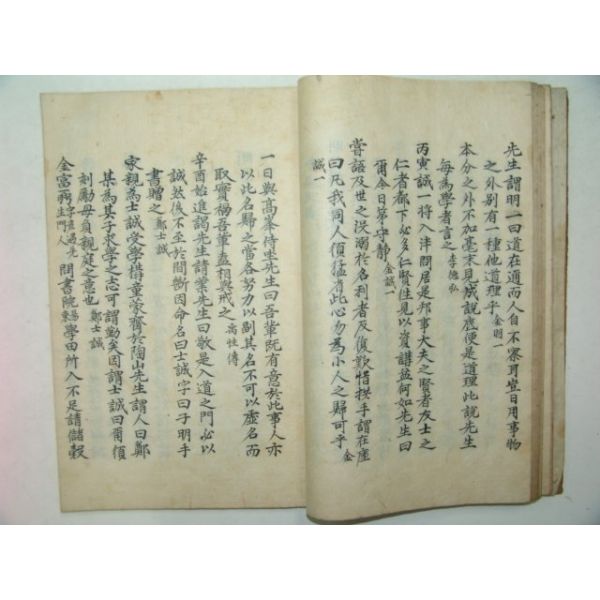 先生謂明一曰道在邇而人自不察耳豈日用事物
之外別有一種他道理乎 金明一
本分之外不加毫末見成說底便是道理此說先生
每為學者言之 李德弘
丙寅誠一將入泮問居是邦事大夫之賢者友士之
仁者都下必多仁賢往見以資講益何如先生曰
爾余日第守靜 金誠一
嘗語及世之沒溺於名利者反復歎惜拱手謂在座
曰凡我同人須猛省此心勿為小人之歸可乎 金
誠一
一日與高峯侍坐先生曰吾輩既有意於此事人亦
以此名歸之當各努力以副其名不可以虛名而
取實禍吾輩盍相與戒之 禹性傳
辛酉始進謁先生請業先生曰敬是入道之門必以
誠然後不至於間斷因命名曰士誠字曰子明手
書贈之 鄭士誠
家親為士誠受學構童蒙齋於陶山先生謂人曰鄭
某為其子求學之志可謂勤矣因謂士誠曰爾須
刻勵毋負親庭之意也 鄭士誠
金富 字 先生門人 問書院 學田所入不足請儲穀